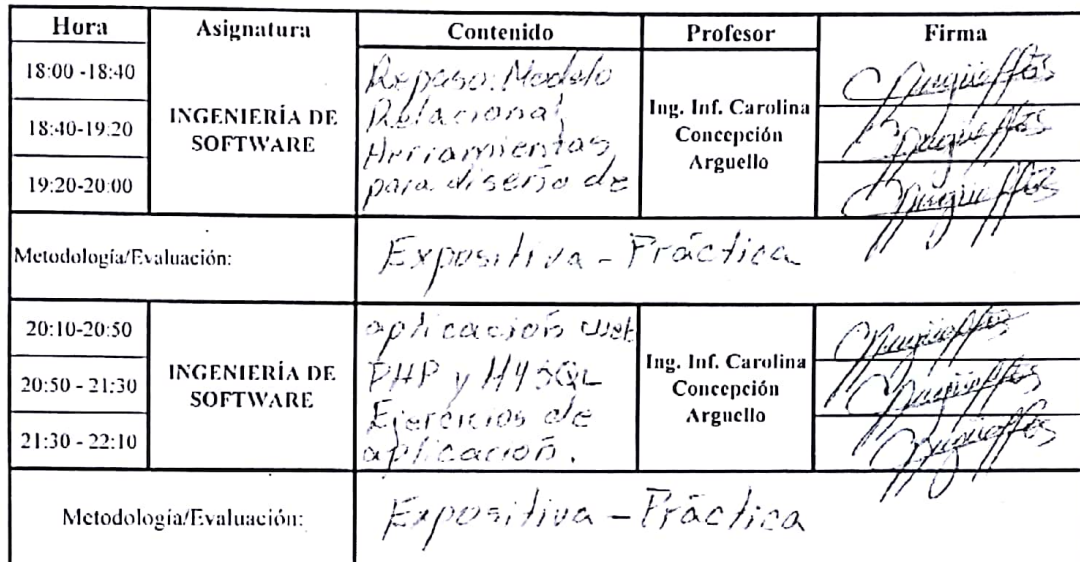 Hora Asignatura Contenido Profesor Firma
18:00 -18:40
18:40-19:20
19:20-20:00
INGENIERÍA DE
SOFTWARE
Repaso: Modelo
Relacional,
Herramientas
para diseño de
Ing. Inf. Carolina
Concepción
Arguello
Metodología/Evaluación:
Expositiva - Práctica
20:10-20:50
20:50 - 21:30
21:30 - 22:10
INGENIERÍA DE
SOFTWARE
aplicación web
PHP y MYSQL
Ejercicios de
aplicación.
Ing. Inf. Carolina
Concepción
Arguello
Metodología/Evaluación:
Expositiva - Práctica